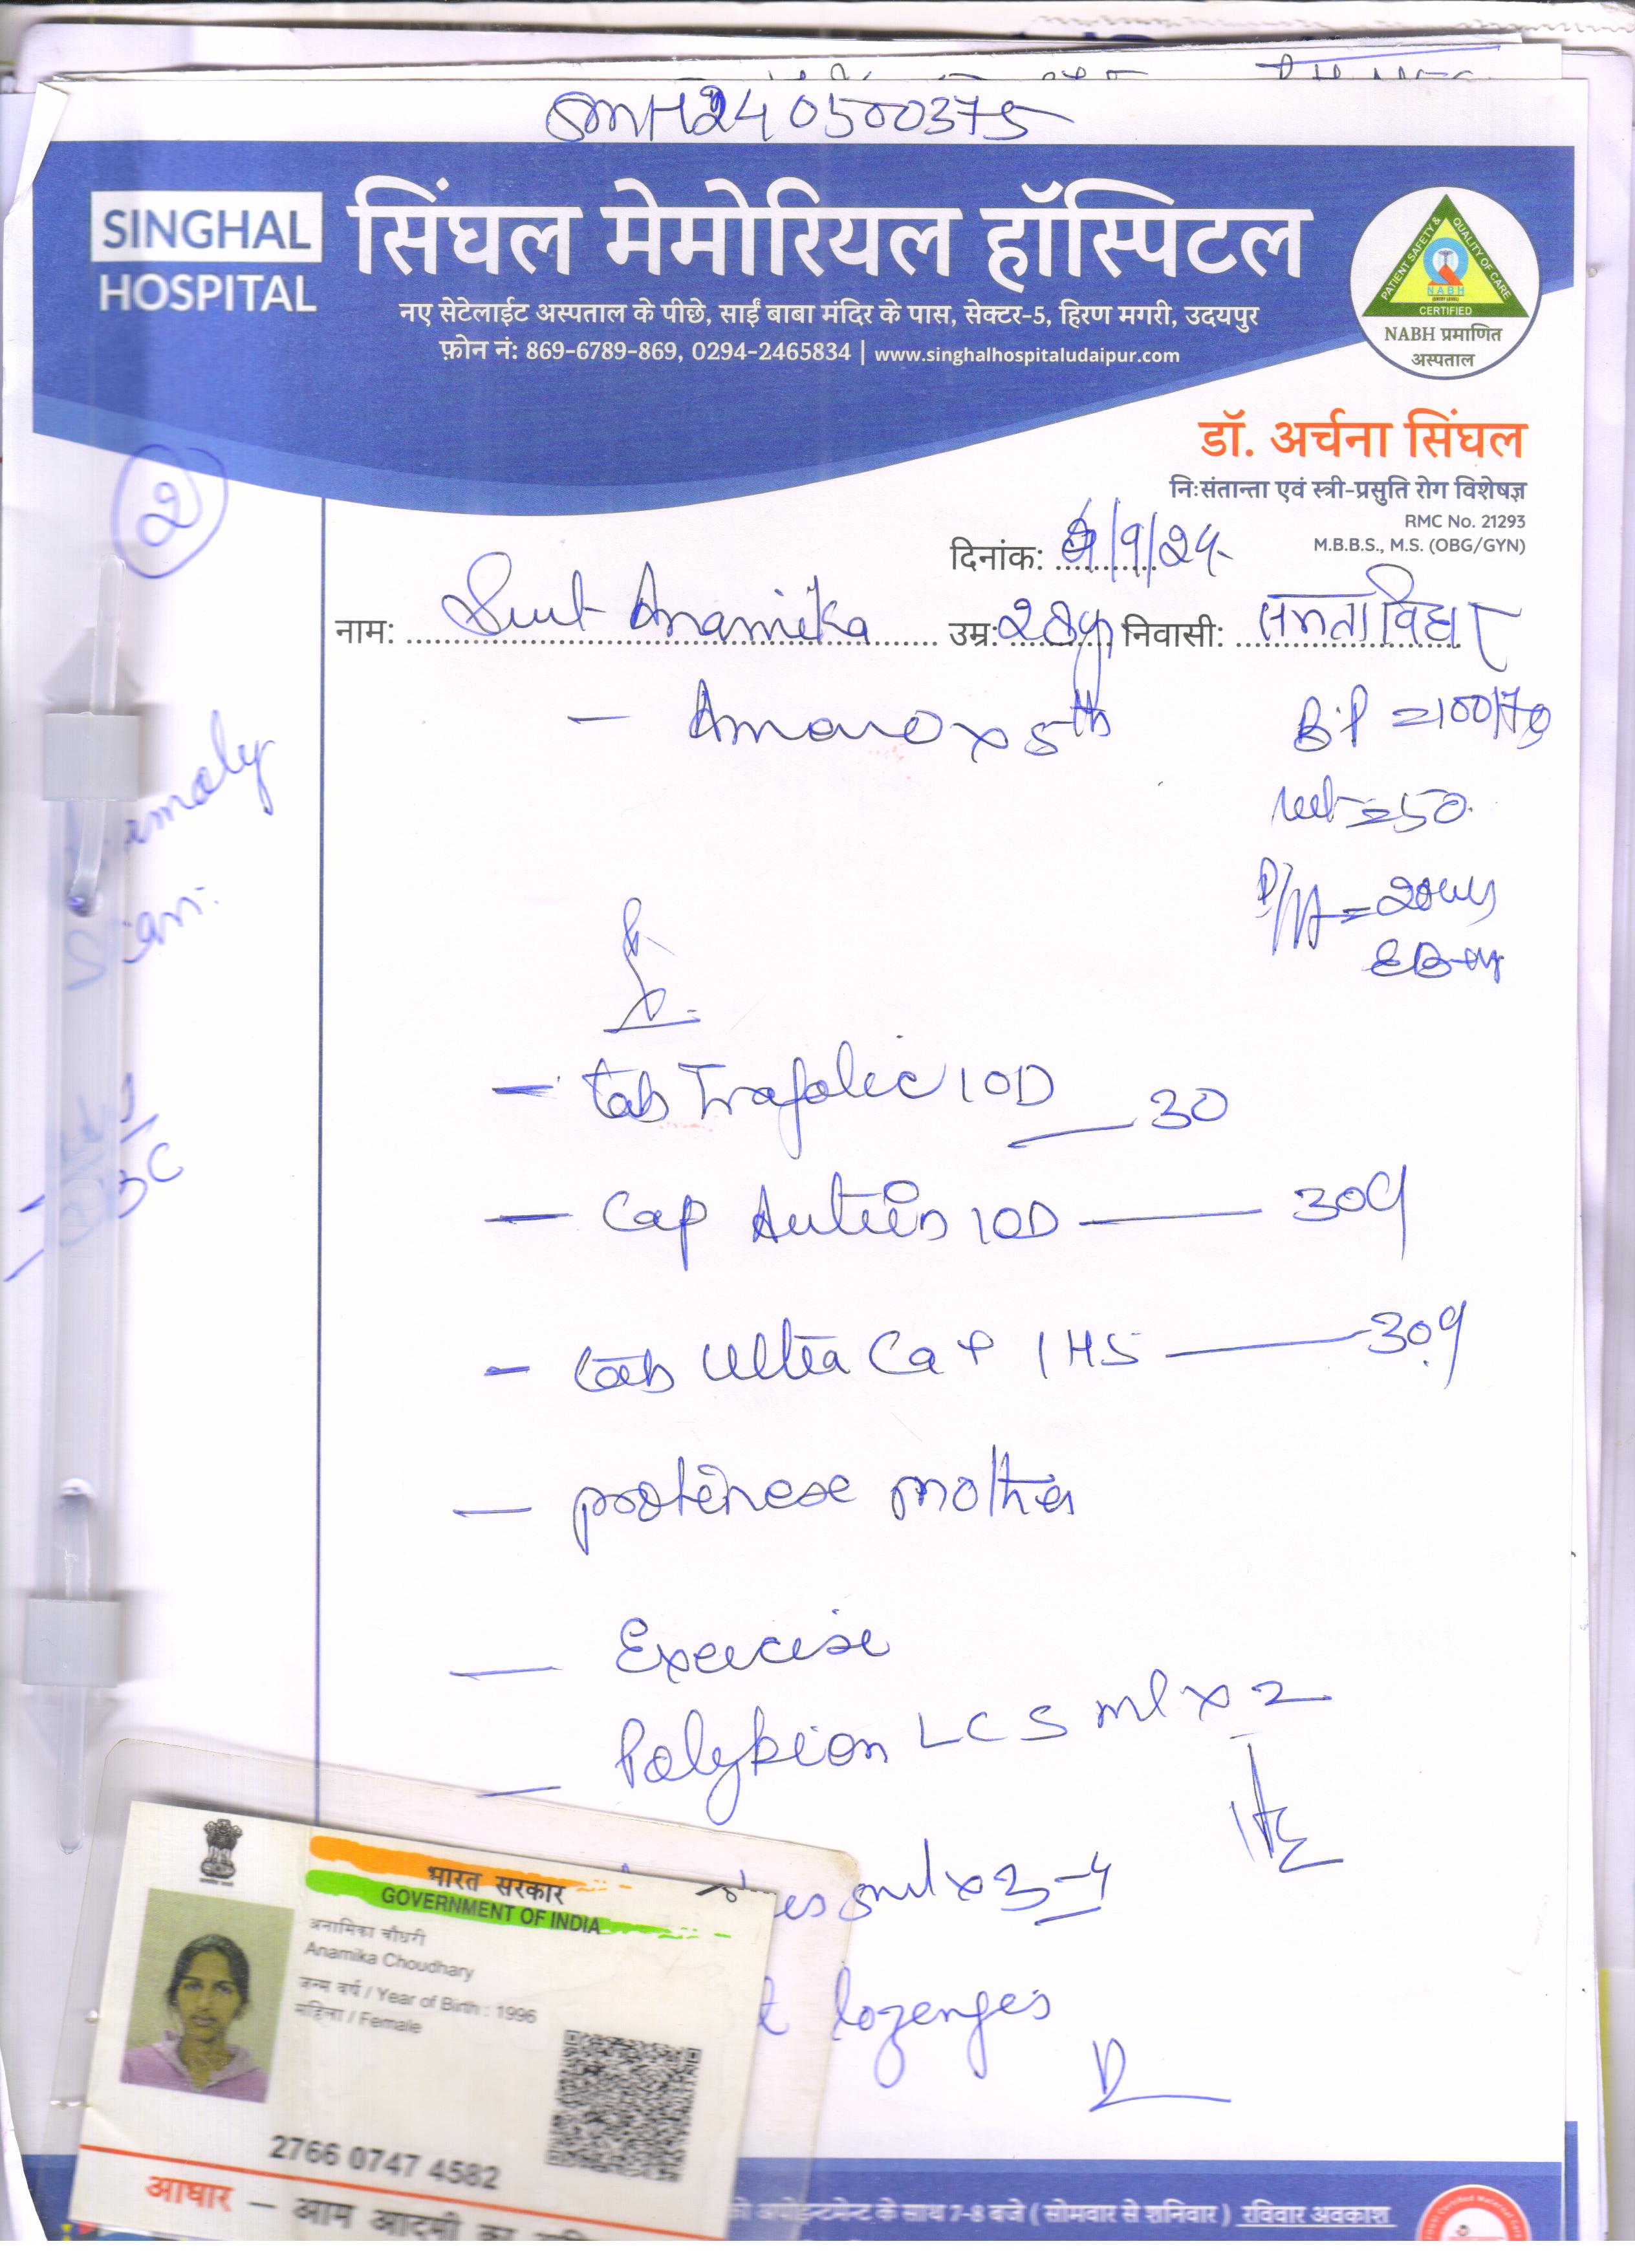 SMH240500375
SINGHAL
HOSPITAL
सिंघल मेमोरियल हॉस्पिटल
नए सेटेलाईट अस्पताल के पीछे, साईं बाबा मंदिर के पास, सेक्टर-5, हिरण मगरी, उदयपुर
फ़ोन नं: 869-6789-869, 0294-2465834 | www.singhalhospitaludaipur.com
PATIENT SAFETY & QUALITY OF CARE
NABH
CERTIFIED
NABH प्रमाणित
अस्पताल
डॉ. अर्चना सिंघल
निःसंतान्ता एवं स्त्री-प्रसुति रोग विशेषज्ञ
RMC No. 21293
M.B.B.S., M.S. (OBG/GYN)
2
दिनांक: /9/24
नाम: Smt Anamika उम्र: 28y निवासी:
- Ameno x 5th
B.P = 100/70
wt = 50
P/A = 20
scan
- tab Trafolic 1OD 30
- Cap 1OD 30
- tab Ultra Ca + 1 HS 30
- protinese mother
- Exercise
- Polybion LC 5 ml x 2
5ml x 3-4
lozenges
भारत सरकार
GOVERNMENT OF INDIA
अनामिका चौधरी
Anamika Choudhary
जन्म वर्ष / Year of Birth : 1996
महिला / Female
2766 0747 4582
आधार - आम आदमी का
अपोइन्टमेन्ट के साथ 7-8 बजे ( सोमवार से शनिवार ) रविवार अवकाश